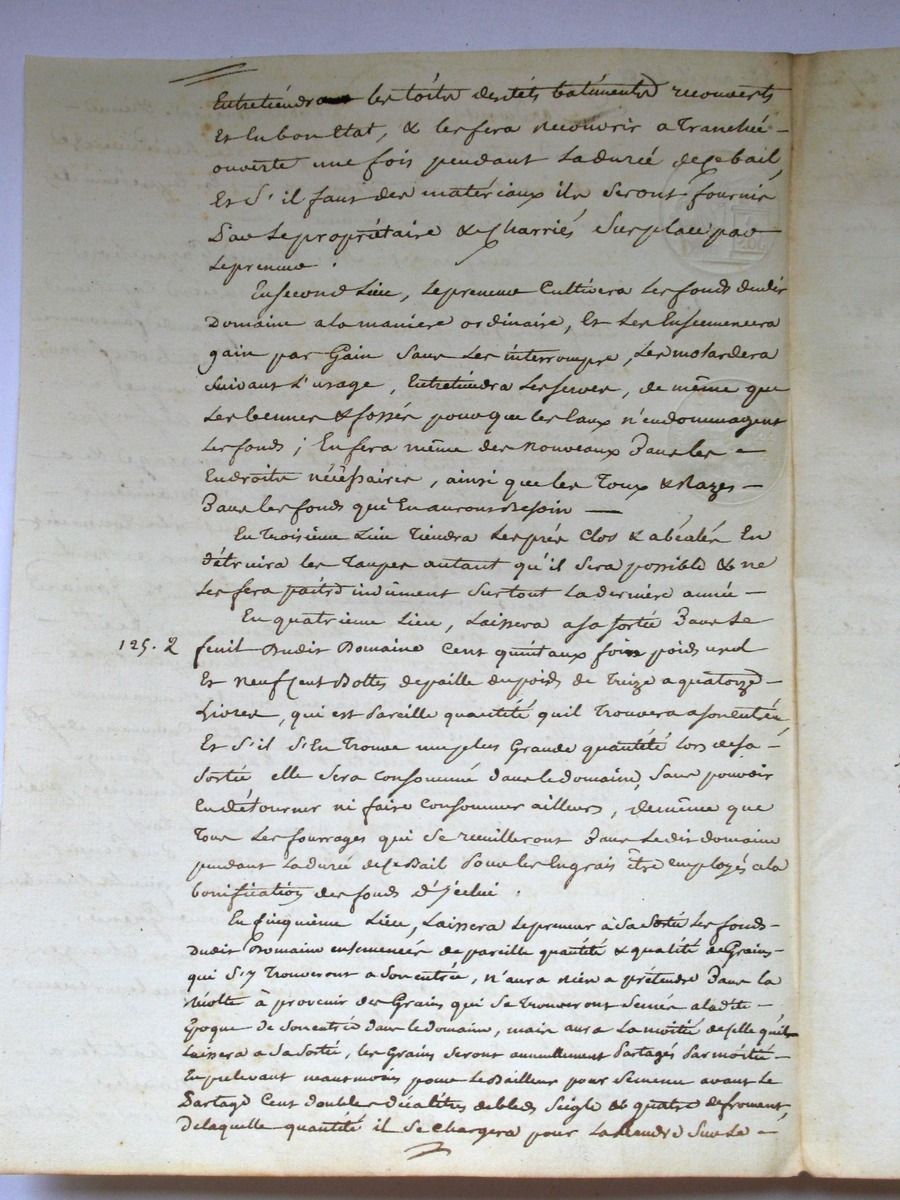 Entretiendra les toits desdits batiments recouverts
et en bon Etat, & les fera recouvrir a Tranchée
ouverte une fois pendant la durée de ce bail
et s'il faut des materiaux ils seront fournis
Par le propriétaire & charriés sur place par
le preneur.
En second Lieu, le preneur Cultivera les fonds dudit
Domaine a la maniere ordinaire, et les Ensemencera
gain par Gain sans les interrompre, les
suivant l'usage, Entretiendra les serves, de même que
les bennes & fossés pour que les Eaux n'endommagent
les fonds; En fera même des nouveaux Dans les
Endroits néçessaires, ainsi que les Toux & Razes
Dans les fonds qui En auront Besoin
En Troisieme Lieu Tiendra les prés Clos & En
détruira les Taupes autant qu'il sera possible & ne
les fera paitre indument surtout la derniere année
En quatrieme Lieu, Laissera a sa sortie Dans le
125. 2 fenil Dudit Domaine Cent quintaux foin poids
et neuf Cent Bottes de paille du poids de Treize a quatorze
Livres, qui est Pareille quantité qu'il Trouvera a son entrée
et s'il s'En Trouve une plus Grande quantité lors de sa
sortie elle sera Consommé dans le domaine, sans pouvoir
En détourner ni faire Consommer ailleurs, de même que
Tous les fourrages qui se cueilleront Dans ledit domaine
pendant la durée de ce Bail Pour les Engrais être employés a la
bonification des fonds d'Jcelui.
En Cinquième Lieu, Laissera le preneur à sa sortie les fonds
dudit Domaine ensemencés de pareille quantité & qualité de Grains
qui s'y Trouveront a son entrée, n'aura rien a prétendre Dans la
récolte à provenir des Grains qui se Trouveront semés a ladite
époque de son entrée dans le domaine, mais aura la moitié de celle qu'il
Laissera a sa sortie, les Grains seront annuellement Partagés Par moitié
En prelevant neanmoins pour le Bailleur pour semence avant le
Partage Cent doubles décalitres de bled seigle & quatre de froment,
de laquelle quantité il se Chargera pour la Rendre sur le